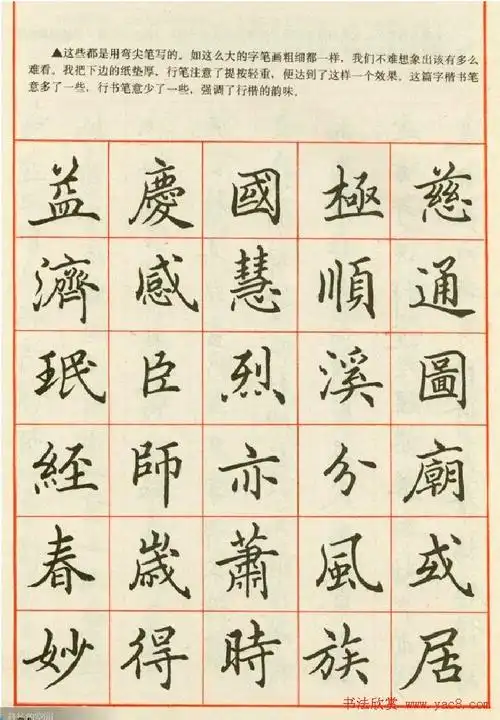 ▲这些都是用弯尖笔写的。如这么大的字笔画粗细都一样，我们不难想象出该有多么
难看。我把下边的纸垫厚，行笔注意了提按轻重，便达到了这样一个效果。这篇字楷书笔
意多了一些，行书笔意少了一些，强调了行楷的韵味。
慈通圖廟或居
極順溪分風族
國慧烈亦蕭時
慶感臣師歲得
益濟珉經春妙
书法欣赏 www.yac8.com